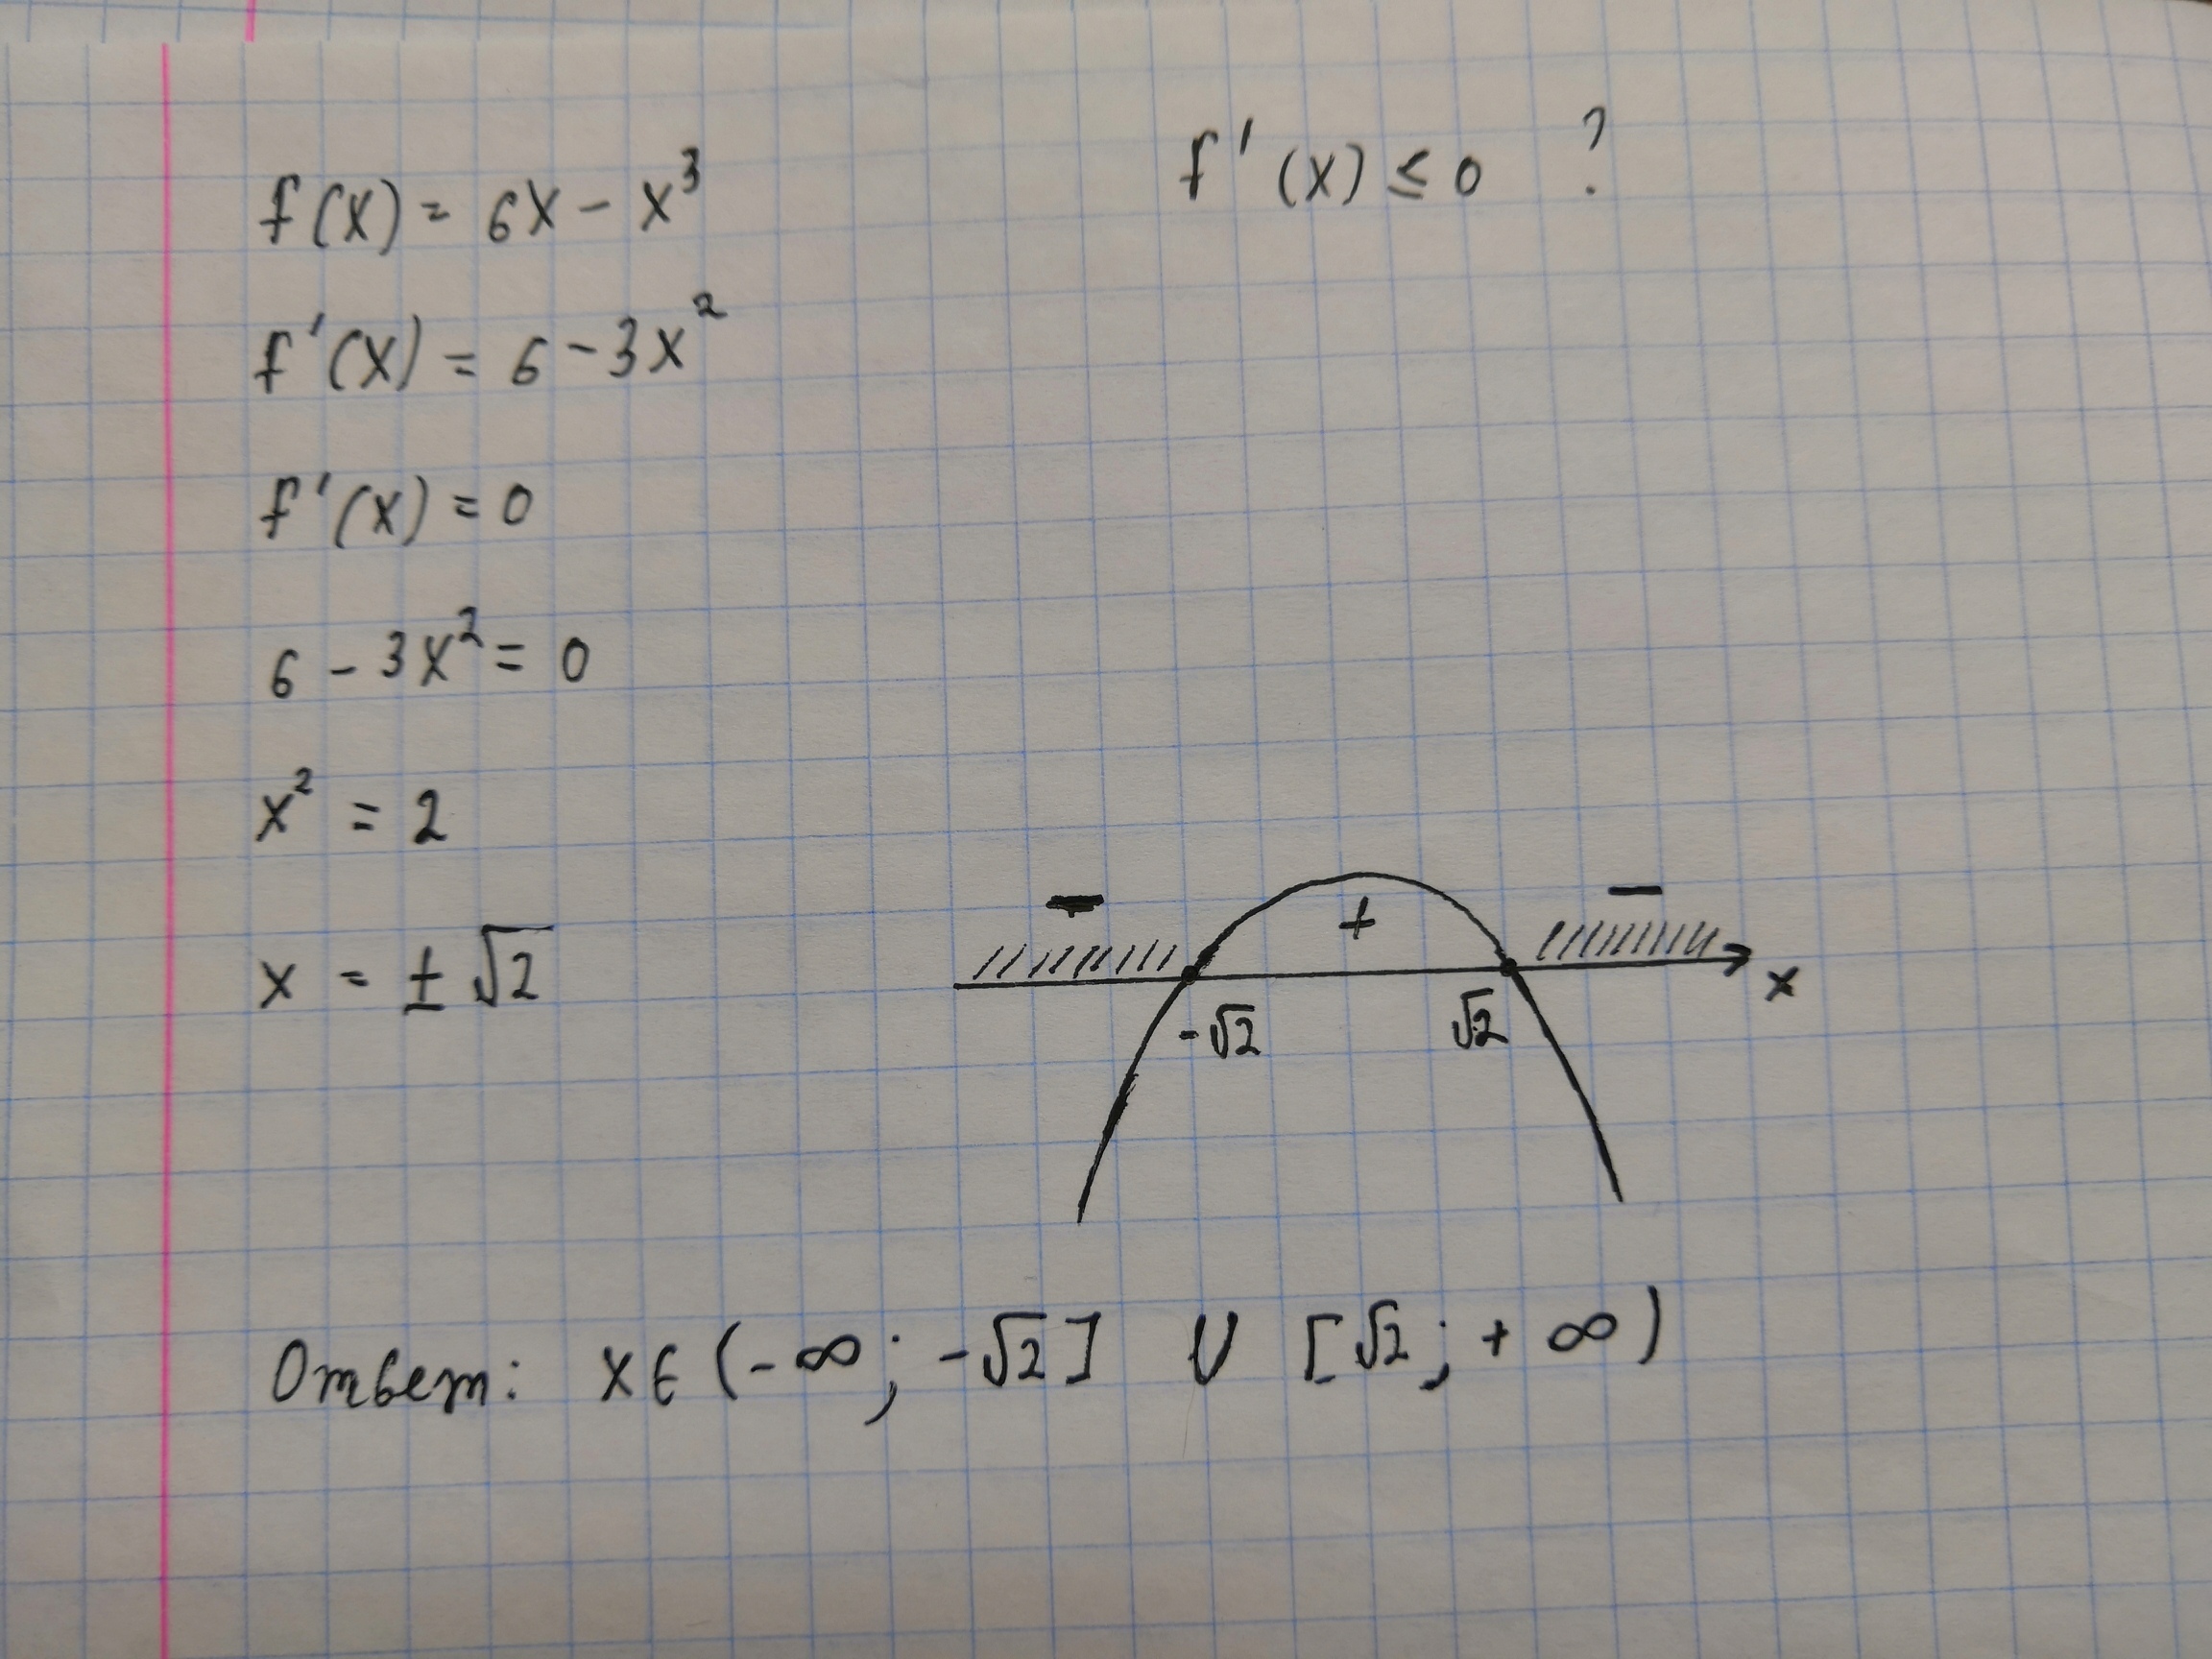 f(x) = 6x - x³
f'(x) ≤ 0 ?
f'(x) = 6 - 3x²
f'(x) = 0
6 - 3x² = 0
x² = 2
x = ± √2
- + -
-√2 √2 x
Ответ: x ∈ (-∞; -√2] ∪ [√2; +∞)